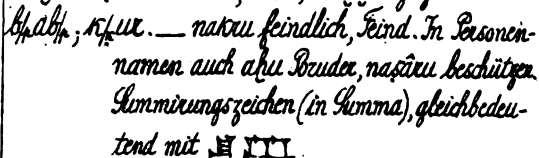 b/pab/p; k/kur. — nakru feindlich, Feind. In Personen-
namen auch ahu Bruder, naṣâru beschützen.
Summirungszeichen (in Summa), gleichbedeu-
tend mit